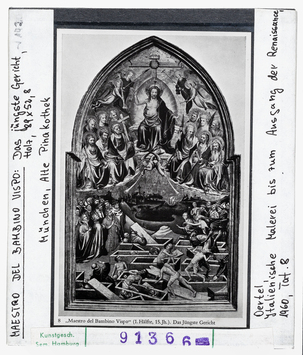 MAESTRO DEL BAMBINO VISPO: Das jüngste Gericht,
Holz, 88 x 52,8
München, Alte Pinakothek
8 „Maestro del Bambino Vispo“ (1. Hälfte, 15. Jh.). Das Jüngste Gericht
Kunstgesch.
Sem. Hamburg
91366
Oertel
Italienische Malerei bis zum Ausgang der Renaissance
1960, Taf. 8